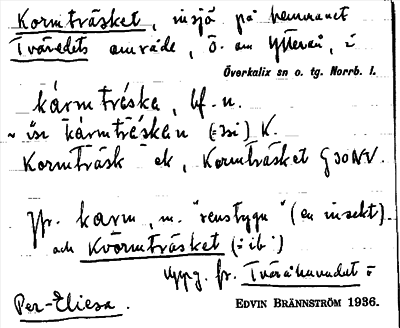 Kormträsket, insjö på hemmanet
Tväredets område, ö. om ytterån, i
Överkalix sn o. tg. Norrb. l.
kårmtréska, bf. n.
~ ĭsr kårmtréskan (=3si) K.
Kormträsk ek, Kormträsket G30NV.
Jfr. karm, m. "renstyga" (en insekt).
och Kvormträsket (=ib:)
Uppg. fr. Tväråhuvudet o
Per-Eliesa.
EDVIN BRÄNNSTRÖM 1936.